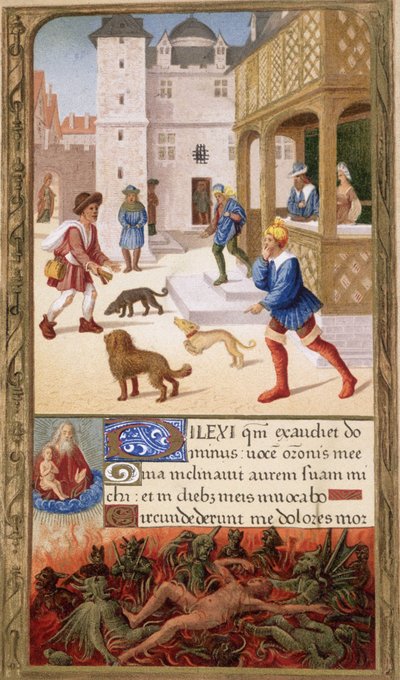 DILEXI qm̄ exaudiet do
minus: uocē or̄onis mee
Quia inclinauit aurem suam mi
chi: et in diebȝ meis inuocabo
Circundederunt me dolores mor